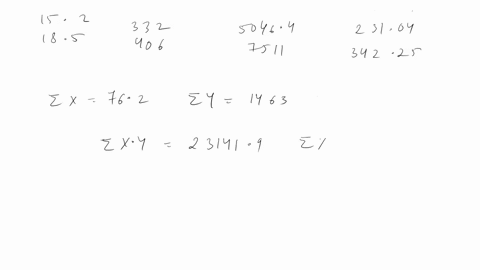 15.2 332 5046.4 231.04
18.5 406 7511 342.25
Σ X = 76.2 Σ Y = 1463
Σ X.Y = 23141.9 Σ